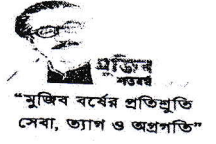 মুজিব
শতবর্ষ
“মুজিব বর্ষের প্রতিশ্রুতি
সেবা, ত্যাগ ও অগ্রগতি”